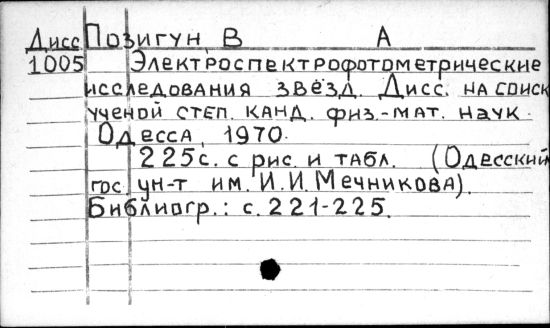 Дисс Позигун В А
1005 Электроспектрофотометрические
исследования звёзд. Дисс. на соиск
ученой степ. канд. физ.-мат. наук.
Одесса, 1970.
225с. с рис. и табл. (Одесский
гос. ун-т им. И.И. Мечникова).
Библиогр.: с. 221-225.